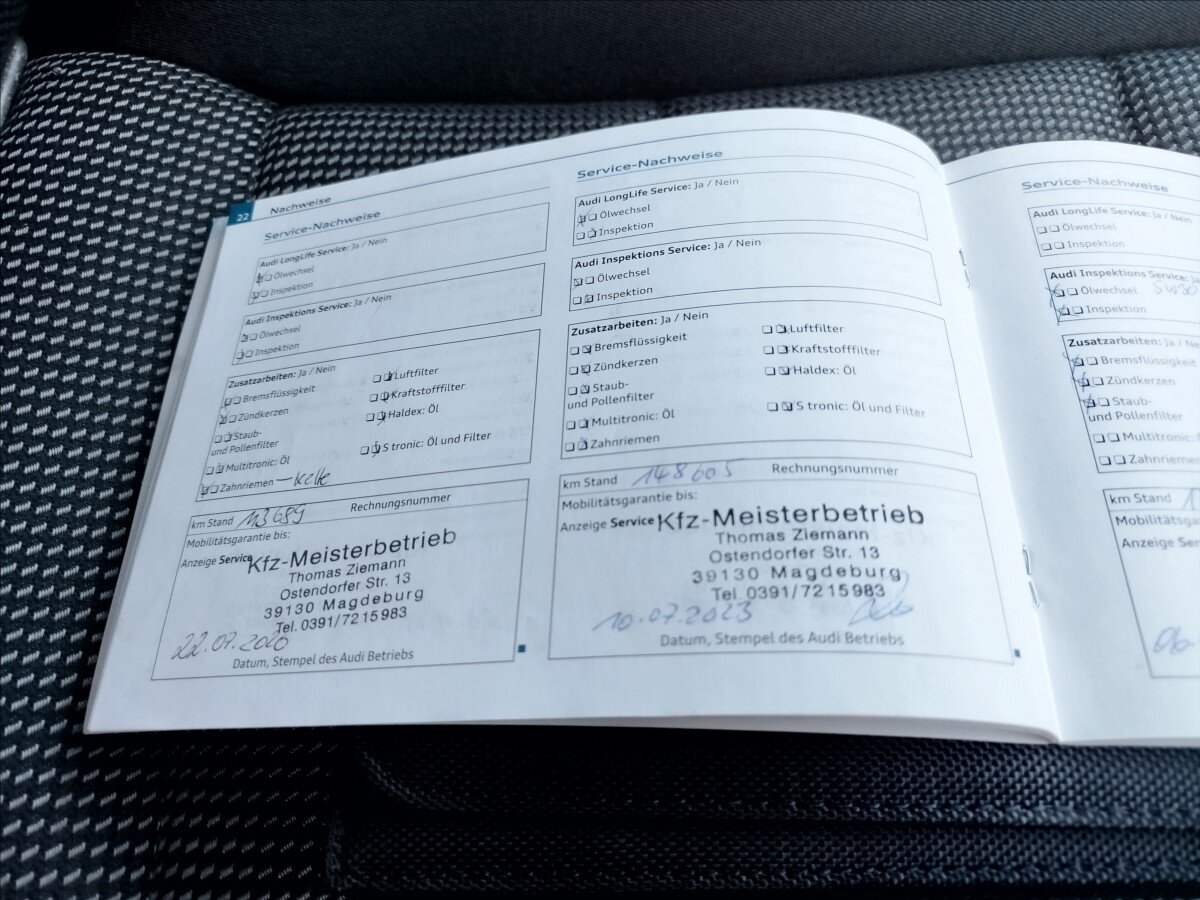 22
Nachweise
Service-Nachweise
Audi LongLife Service: Ja / Nein
Ölwechsel
Inspektion
Audi Inspektions Service: Ja / Nein
Ölwechsel
Inspektion
Zusatzarbeiten: Ja / Nein
Bremsflüssigkeit
Zündkerzen
Staub-
und Pollenfilter
Multitronic: Öl
Zahnriemen – Kette
Luftfilter
Kraftstofffilter
Haldex: Öl
S tronic: Öl und Filter
km Stand 113689 Rechnungsnummer
Mobilitätsgarantie bis:
Anzeige Service
Kfz-Meisterbetrieb
Thomas Ziemann
Ostendorfer Str. 13
39130 Magdeburg
Tel. 0391/7215983
22.07.2020
Datum, Stempel des Audi Betriebs
Service-Nachweise
Audi LongLife Service: Ja / Nein
Ölwechsel
Inspektion
Audi Inspektions Service: Ja / Nein
Ölwechsel
Inspektion
Zusatzarbeiten: Ja / Nein
Bremsflüssigkeit
Zündkerzen
Staub-
und Pollenfilter
Multitronic: Öl
Zahnriemen
Luftfilter
Kraftstofffilter
Haldex: Öl
S tronic: Öl und Filter
km Stand 148605 Rechnungsnummer
Mobilitätsgarantie bis:
Anzeige Service
Kfz-Meisterbetrieb
Thomas Ziemann
Ostendorfer Str. 13
39130 Magdeburg
Tel. 0391/7215983
10.07.2023
Datum, Stempel des Audi Betriebs
Service-Nachweise
Audi LongLife Service: Ja / Nein
Ölwechsel
Inspektion
Audi Inspektions Service: Ja
Ölwechsel 5W30
Inspektion
Zusatzarbeiten: Ja / Ne
Bremsflüssigkeit
Zündkerzen
Staub-
und Pollenfilter
Multitronic:
Zahnriemen
km Stand 1
Mobilitätsga
Anzeige Ser
06